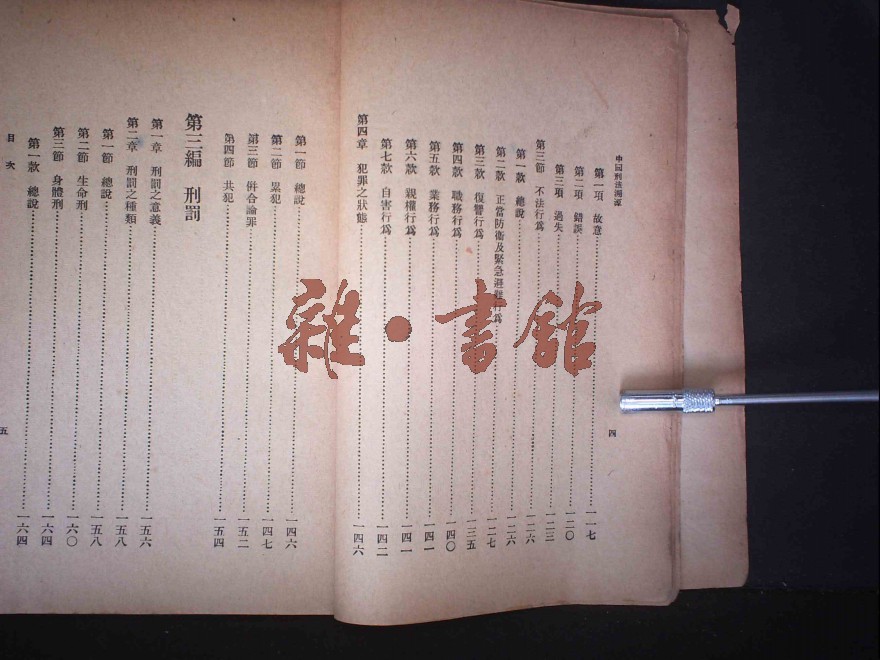 中國刑法溯源
第一項 故意 一一七
第二項 錯誤 一二〇
第三項 過失 一二三
第三節 不法行爲 一二六
第一款 總說 一二六
第二款 正當防衛及緊急避難行爲 一二七
第三款 復讐行爲 一三五
第四款 職務行爲 一四〇
第五款 業務行爲 一四一
第六款 親權行爲 一四一
第七款 自害行爲 一四二
第四章 犯罪之狀態 一四六
四
第一節 總說 一四六
第二節 累犯 一四七
第三節 併合論罪 一五二
第四節 共犯 一五四
第三編 刑罰
第一章 刑罰之意義 一五六
第二章 刑罰之種類 一五八
第一節 總說 一五八
第二節 生命刑 一六〇
第三節 身體刑 一六四
第一款 總說 一六四
目次
五
雜·書館